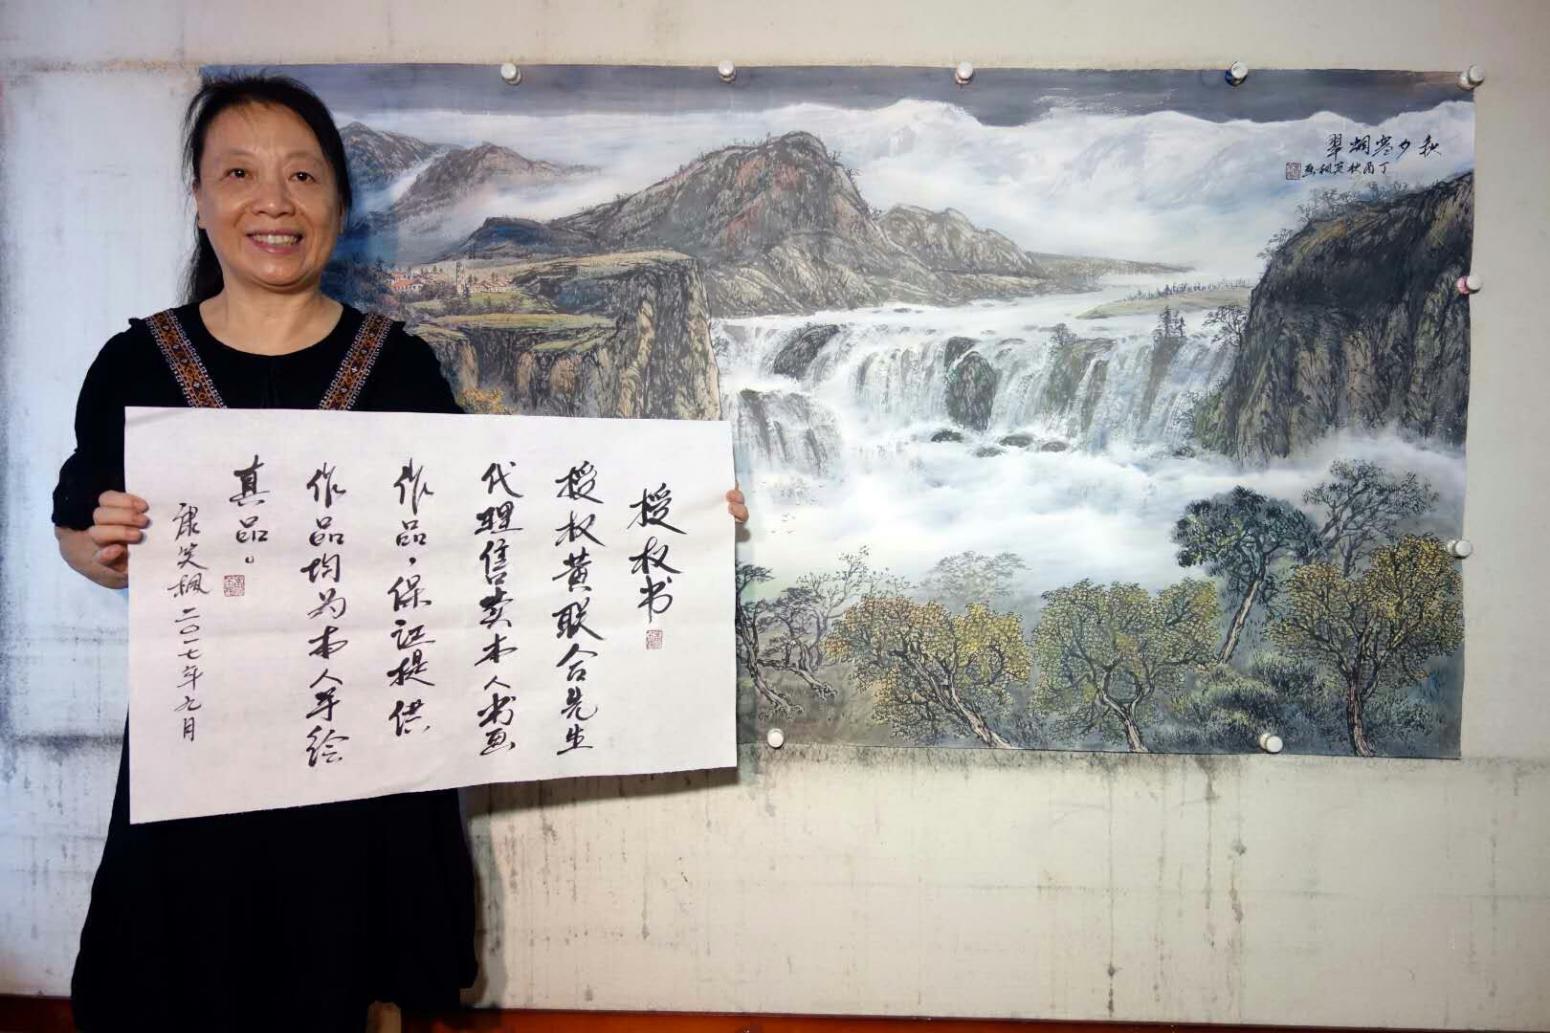 授权书
授权黄联合先生
代理售卖本人书画
作品，保证提供
作品均为本人手绘
真品。
康笑枫 二〇一七年九月
秋夕寒烟翠
丁酉秋笑枫画